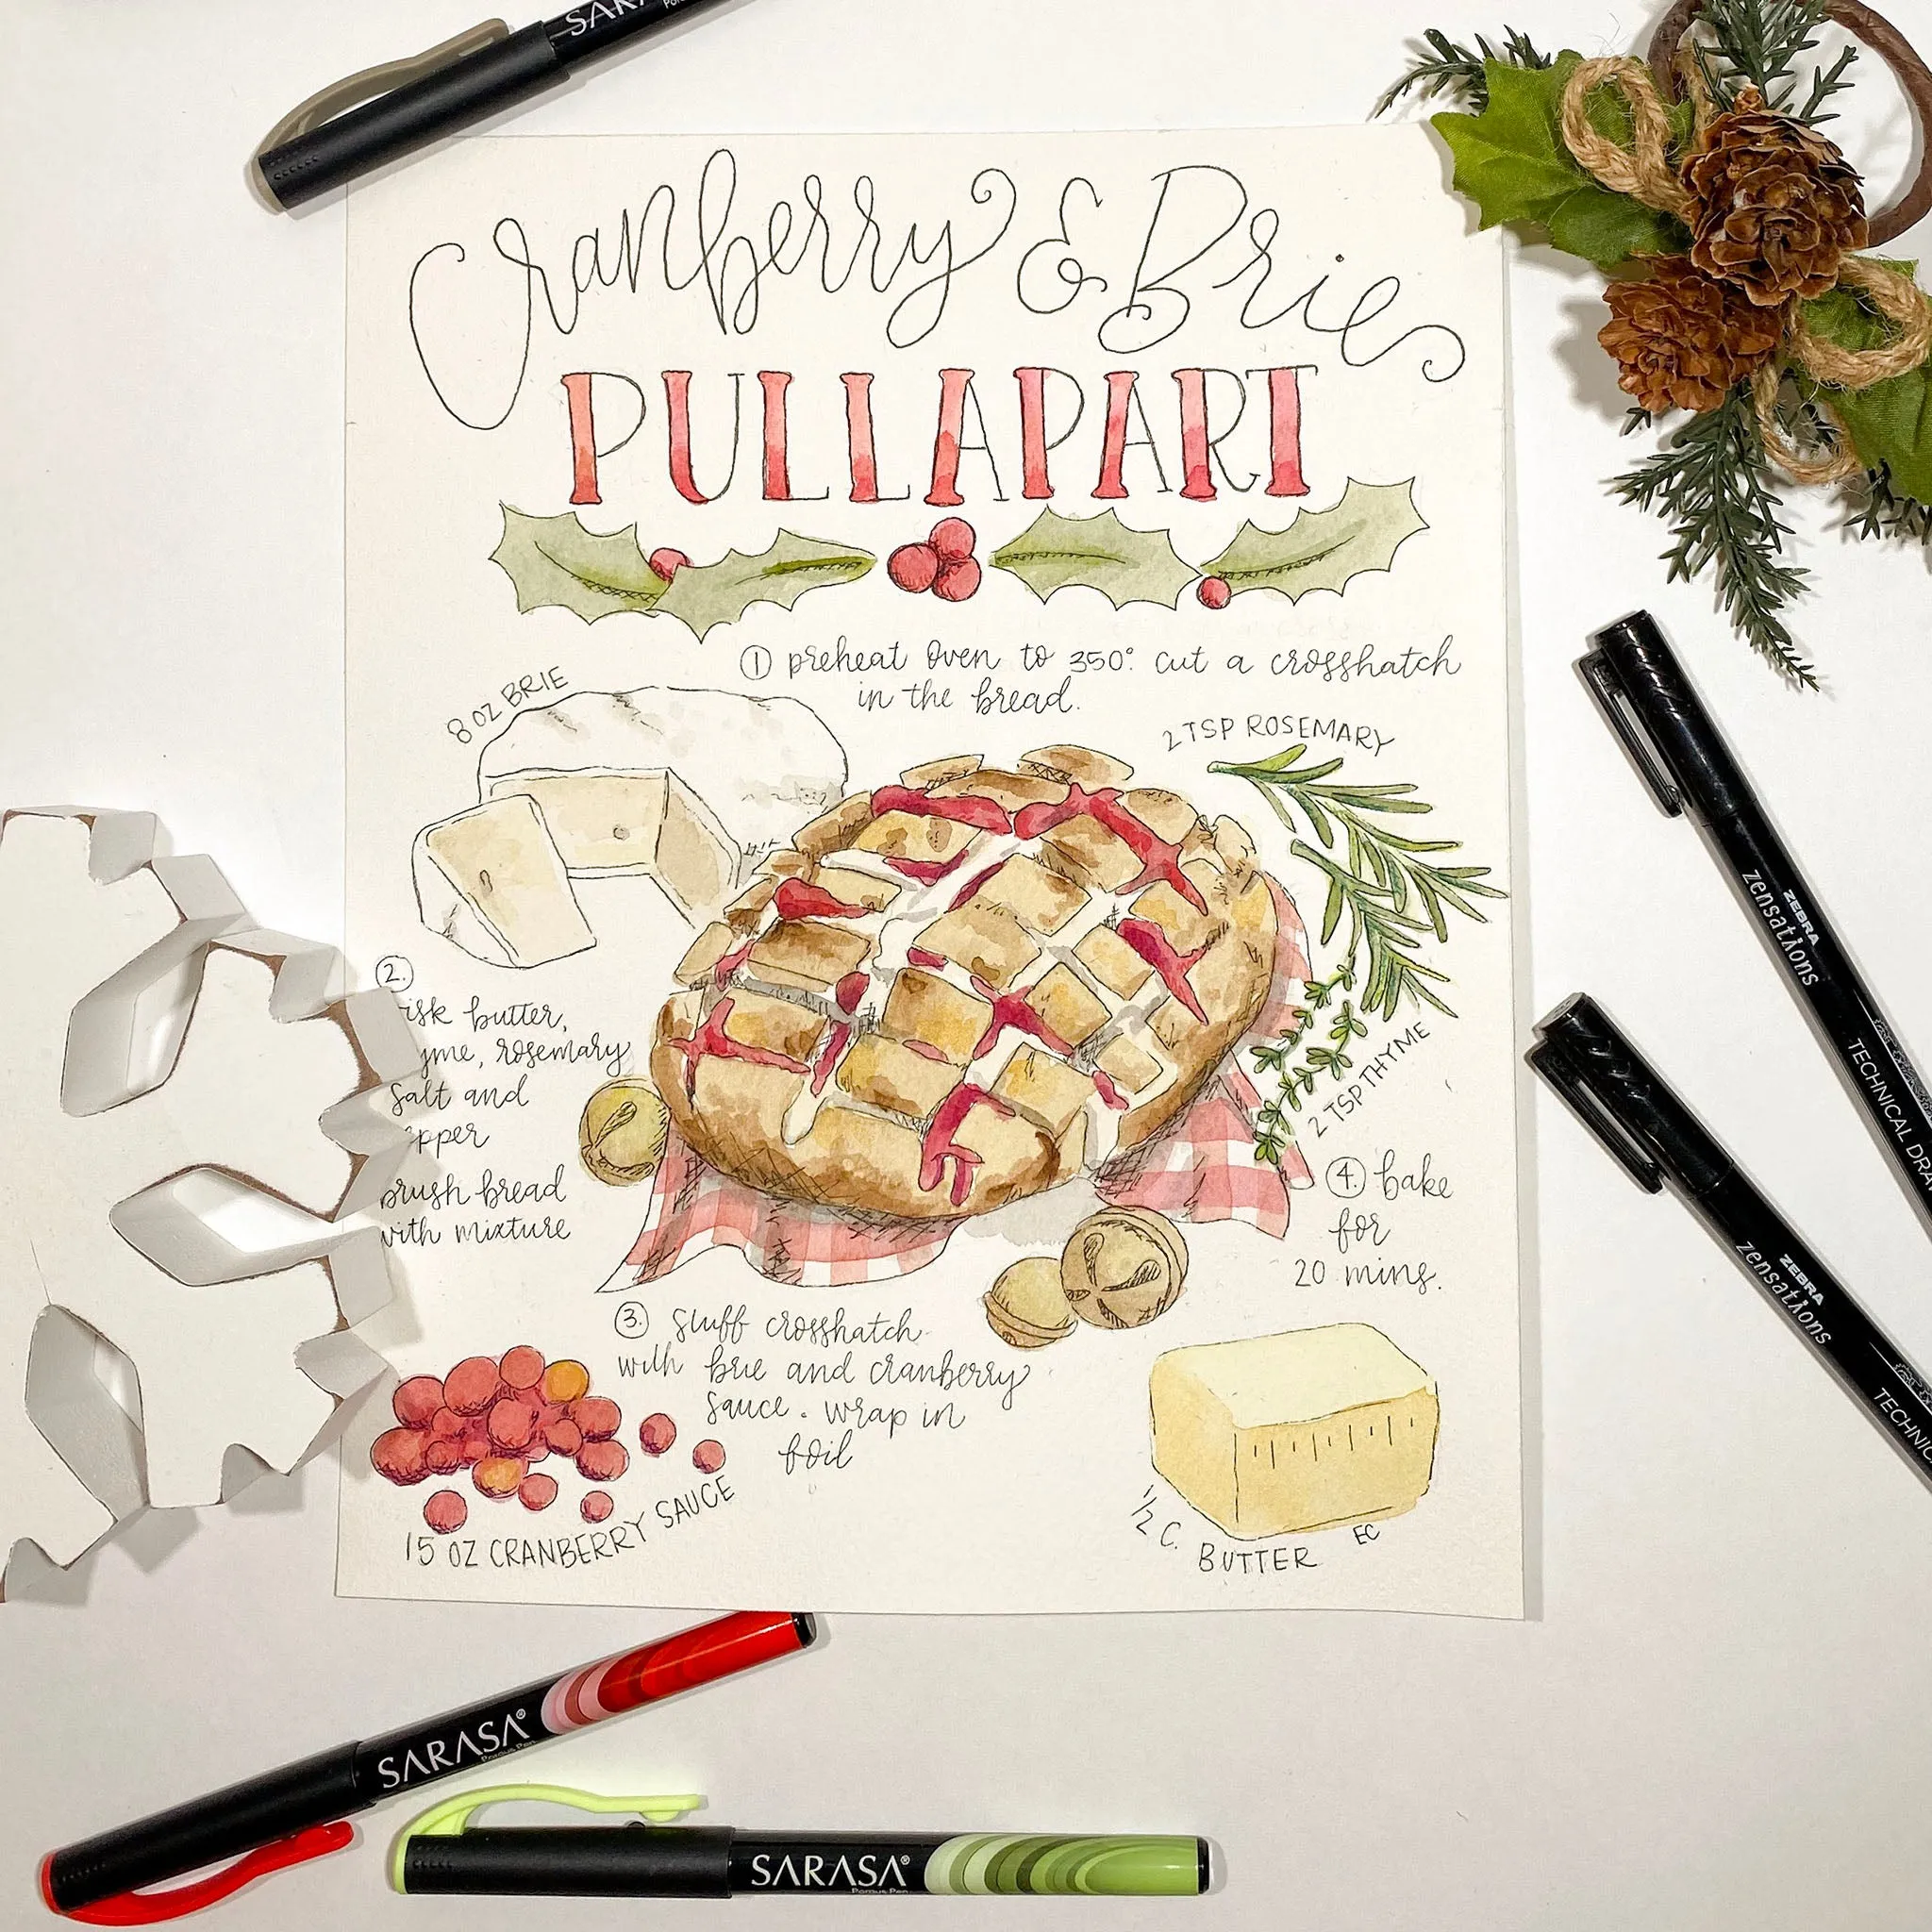 SARA
Cranberry & Brie
PULLAPART
① preheat oven to 350°. cut a crosshatch
in the bread.
8 OZ BRIE
2 TSP ROSEMARY
②.
butter,
rosemary
salt and
brush bread
with mixture
2 TSP THYME
④. bake
for
20 mins.
③. stuff crosshatch
with brie and cranberry
sauce. wrap in
foil
15 OZ CRANBERRY SAUCE
1/2 C. BUTTER
EC
ZEBRA
zensations
TECHNICAL DRA
ZEBRA
zensations
TECHNIC
SARASA®
Porous Pen
SARASA®
Porous Pen